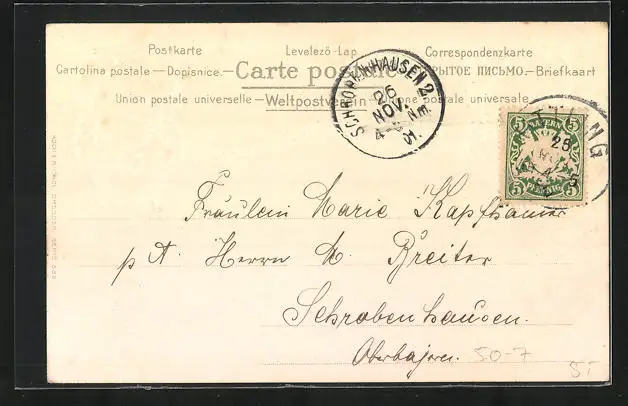 Postkarte Levelező-Lap Correspondenzkarte
Cartolina postale — Dopisnice. — Carte postale ОТКРЫТОЕ ПИСЬМО. — Briefkaart
Union postale universelle — Weltpostverein — Unione postale universale
SCHROBENHAUSEN 2
26
NOV.
4-5 NM.
01.
5 BAYERN 5
26
5 PFENNIG 5
Fräulein Marie Kapfhamer
p A. Herrn M. Breiter
Schrobenhausen.
Oberbayern. 50-7